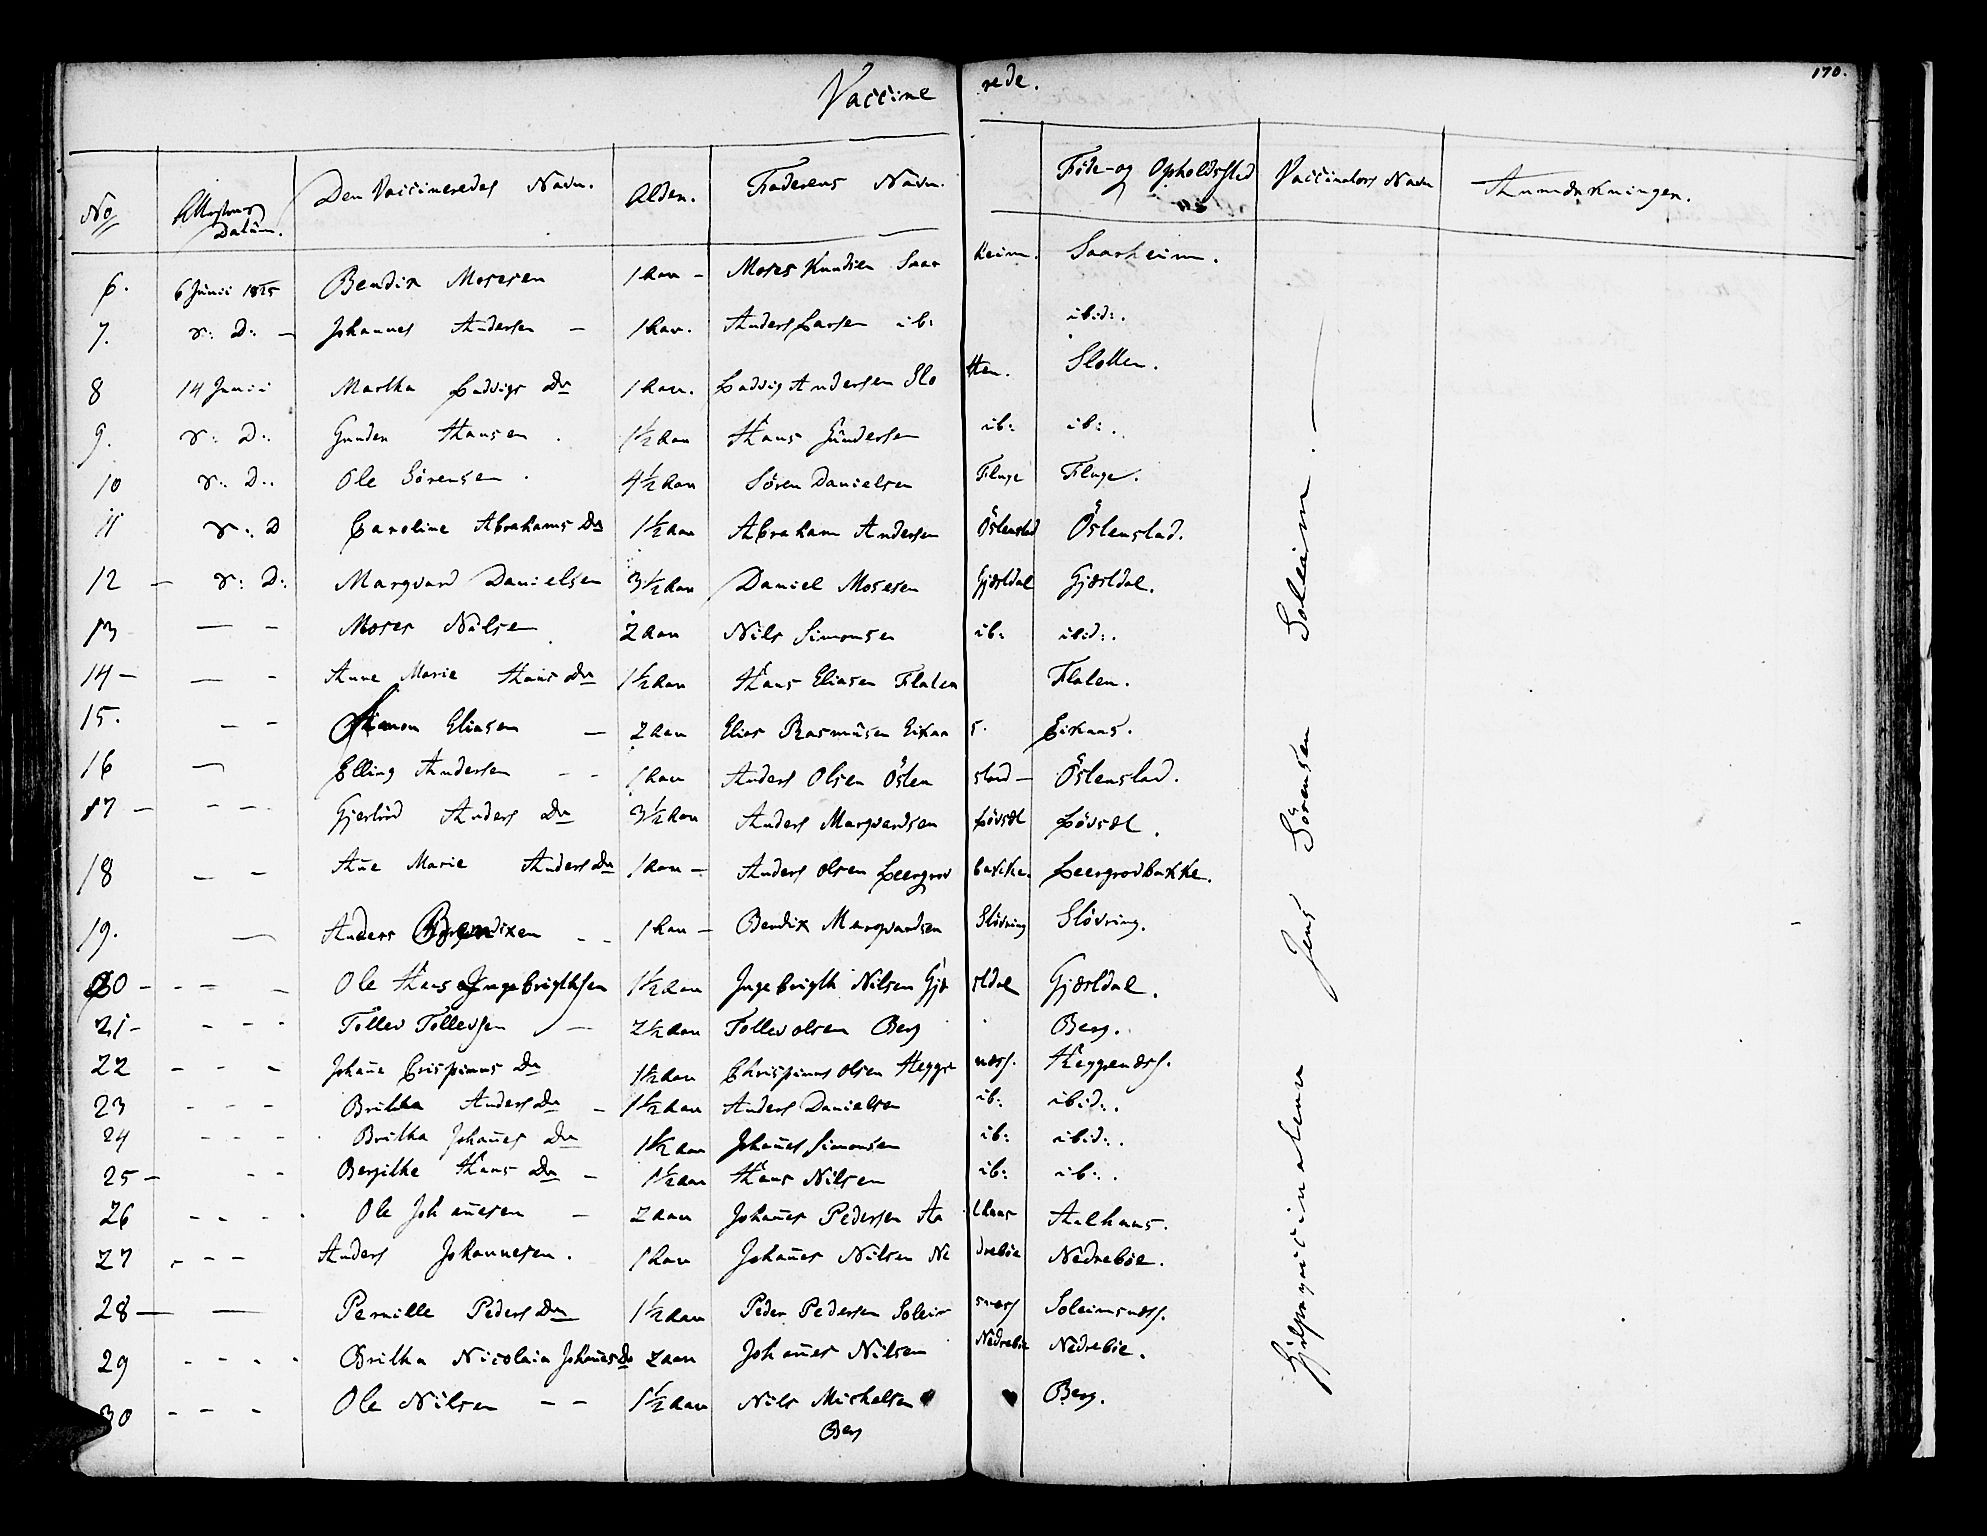 170.
Vaccinerede.
No Attestens Datum. Den Vaccineredes Navn. Alder. Faderens Navn. Føde- og Opholdssted Vaccinators Navn Anmærkninger.
6. 6 Junii 1825 Bendix Mosesen 1 Aar - Moses Knudsen Saarheim. Saarheim.
7. d: D: - Johannes Andersen - 1 Aar. Anders Larsen ib: ibid:.
8 14 Junii Martha Ladvigs Dr 1 Aar. Ladvig Andersen Slotten. Slotten.
9. d: D: Gunder Hansen. 1½ Aar Hans Gündersen ib: ib:.
10 d: D: Ole Sörensen. 4½ Aar Sören Danielsen Fluge Fluge.
11 d: D Caroline Abrahams Dr 1½ Aar Abraham Andersen Östenstad Östenstad.
12 - d: D: Marqvard Danielsen 3½ Aar Daniel Mosesen Gjæstdal Gjæstdal.
13 — - Moses Nilsen 2 Aar Nils Simonsen ib: ibid:.
14 - — - Anne Marie Hans Dr 1½ Aar Hans Eliasen Flaten Flaten.
15. — - Simon Eliasen - 2 Aar Elias Rasmüsen Eikaas. Eikaas.
16 — Elling Andersen - - 1 Aar Anders Olsen Östenstad - Östenstad.
17 - - - Gjertrüd Anders Dr 3½ Aar Anders Marqvardsen Lövsæt Lövsæt.
18 - - Ane Marie Anders Dr 1 Aar - Anders Olsen Leergrovbakke. Leergrovbakke.
19. — Anders Bendixen - - 1 Aar - Bendix Marqvardsen Slövring Slövring.
20 - - - - Ole Hans Ingebrigthsen 1½ Aar Ingebrigth Nilsen Gjæstdal Gjæstdal.
21 - - - - Tollev Tollevsen - 2½ Aar Tollev Olsen Berg Berg.
22 - - - Johane Crispinus Dr 1½ Aar Chrispinus Olsen Heggenæss. Heggenæss.
23 - - - Britha Anders Dr - 1½ Aar Anders Danielsen ib: ibid:.
24 - - - Britha Johanes Dr 1½ Aar Johanes Simonsen ib: ibid:.
25 - - - Bergithe Hans Dr - 1½ Aar Hans Nilsen ib: ib:.
26 - - - Ole Johanesen - 2 Aar Johanes Pedersen Aalhaus Aalhaus.
27 - - - Anders Johannesen. 1 Aar Johanes Nilsen Nedrebøe Nedrebøe.
28 - — Pernille Peders Dr 1½ Aar Peder Pedersen Soleimsnæss Soleimsnæss.
29 - - - - Britha Nicolaia Johanes Dr 2 Aar Johanes Nilsen Nedrebøe Nedrebøe.
30 - - - Ole Nilsen - - 1½ Aar Nils Michelsen Berg Berg.
Hjelpevaccinateur Jens Sörensen Soleim. —